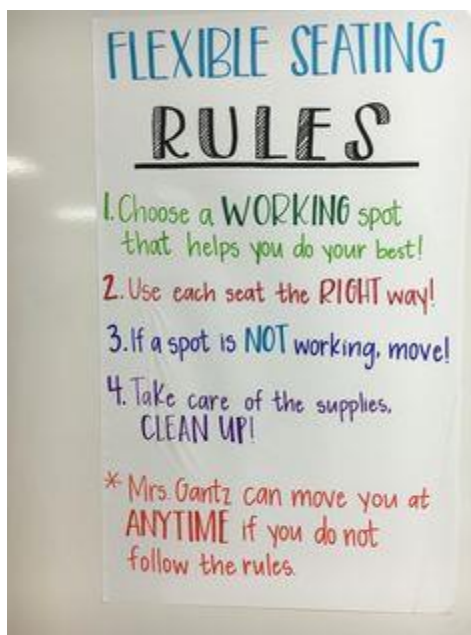 FLEXIBLE SEATING
RULES
1. Choose a WORKING spot
that helps you do your best!
2. Use each seat the RIGHT way!
3. If a spot is NOT working, move!
4. Take care of the supplies.
CLEAN UP!
* Mrs. Gantz can move you at
ANYTIME if you do not
follow the rules.